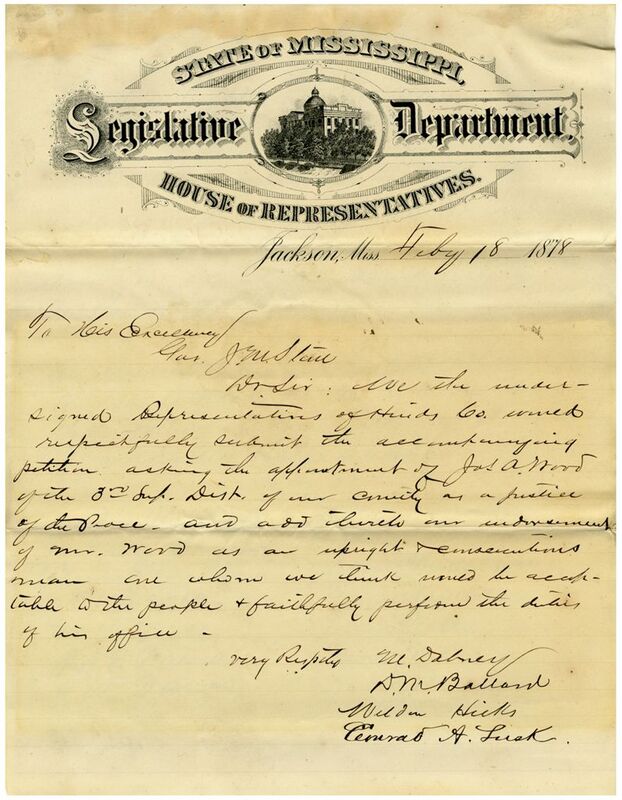 STATE OF MISSISSIPPI,
Legislative Department,
HOUSE OF REPRESENTATIVES.
Jackson, Miss. Feby 18 1878
To His Excellency
Gov. J M Stone
Dr Sir: We the under-
signed Representatives of Hinds Co. would
respectfully submit the accompanying
petition asking the appointment of Jos A. Wood
of the 3rd Sup. Dist. of our county as a justice
of the Peace - and add thereto our endorsement
of Mr. Wood as an upright & conscientious
man one whom we think would be accep-
table to the people & faithfully perform the duties
of his office -
very Respty M. Dabney
D. M. Ballard
Weldon Hicks
Conrad A. Lusk.